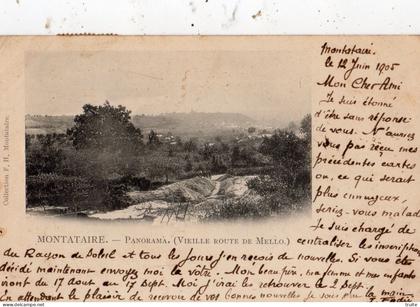 Montataire.
le 12 Juin 1905
Mon Cher Ami
Je suis étonné
d'être sans réponse
de vous. N'auriez
vous pas reçu mes
précédentes cartes
ou, ce qui serait
plus ennuyeux,
seriez-vous malade
Je suis chargé de
centraliser les inscriptions
du Rayon de Soleil et tous les Jours j'en reçois de nouvelles. Si vous êtes
décidé maintenant envoyez moi la votre. Mon beau frère, ma femme et mes enfants
iront du 17 Aout au 17 Sept. Moi j'irai les retrouver le 2 Sept.
En attendant le plaisir de recevoir de vos bonnes nouvelles je vous la main
Collection P. H. Montataire.
MONTATAIRE. — PANORAMA. (VIEILLE ROUTE DE MELLO.)
delcampe.net